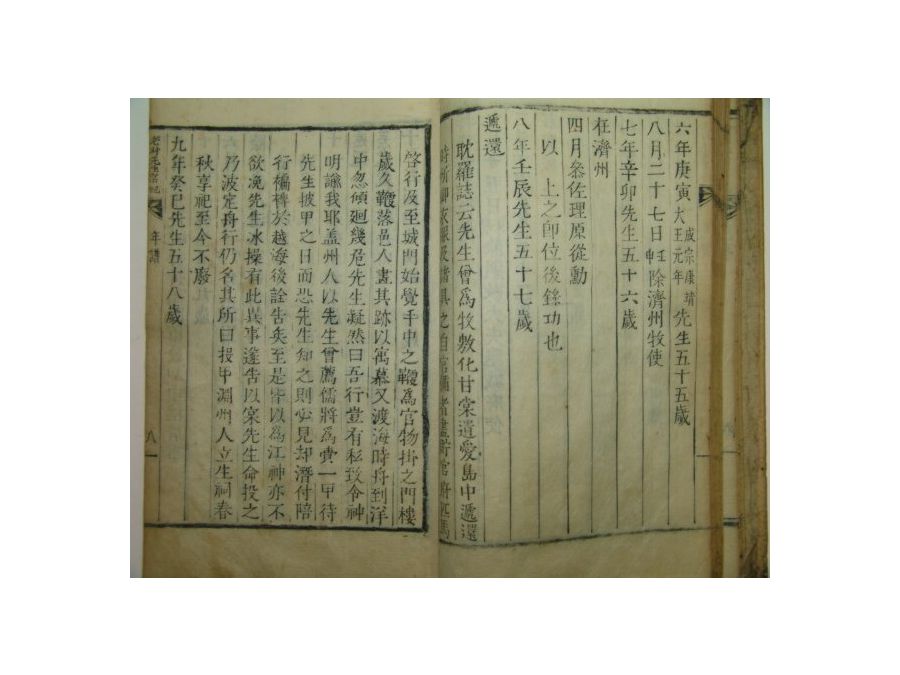 六年庚寅成宗康靖大王元年先生五十五歲
八月二十七日壬申除濟州牧使
七年辛卯先生五十六歲
在濟州
四月叅佐理原從勳
以 上之卽位後錄功也
八年壬辰先生五十七歲
遞還
耽羅誌云先生曾爲牧敷化甘棠遺愛島中遞還
時所御衣服及諸具之自官備者盡付官府匹馬
啓行及至城門始覺手中之鞭爲官物掛之門樓
歲久鞭落邑人畫其跡以寓慕又渡海時舟到洋
中忽傾廻幾危先生凝然曰吾行豈有私致令神
明諭我耶盖州人以先生曾薦儒將爲賫一甲待
先生披甲之日而恐先生知之則必見却潛付陪
行褊裨於越海後詮告矣至是皆以爲江神亦不
欲浼先生冰操有此異事遂告以宲先生命投之
乃波定舟行仍名其所曰投甲淵州人立生祠春
秋享祀至今不廢
九年癸巳先生五十八歲
年譜
八